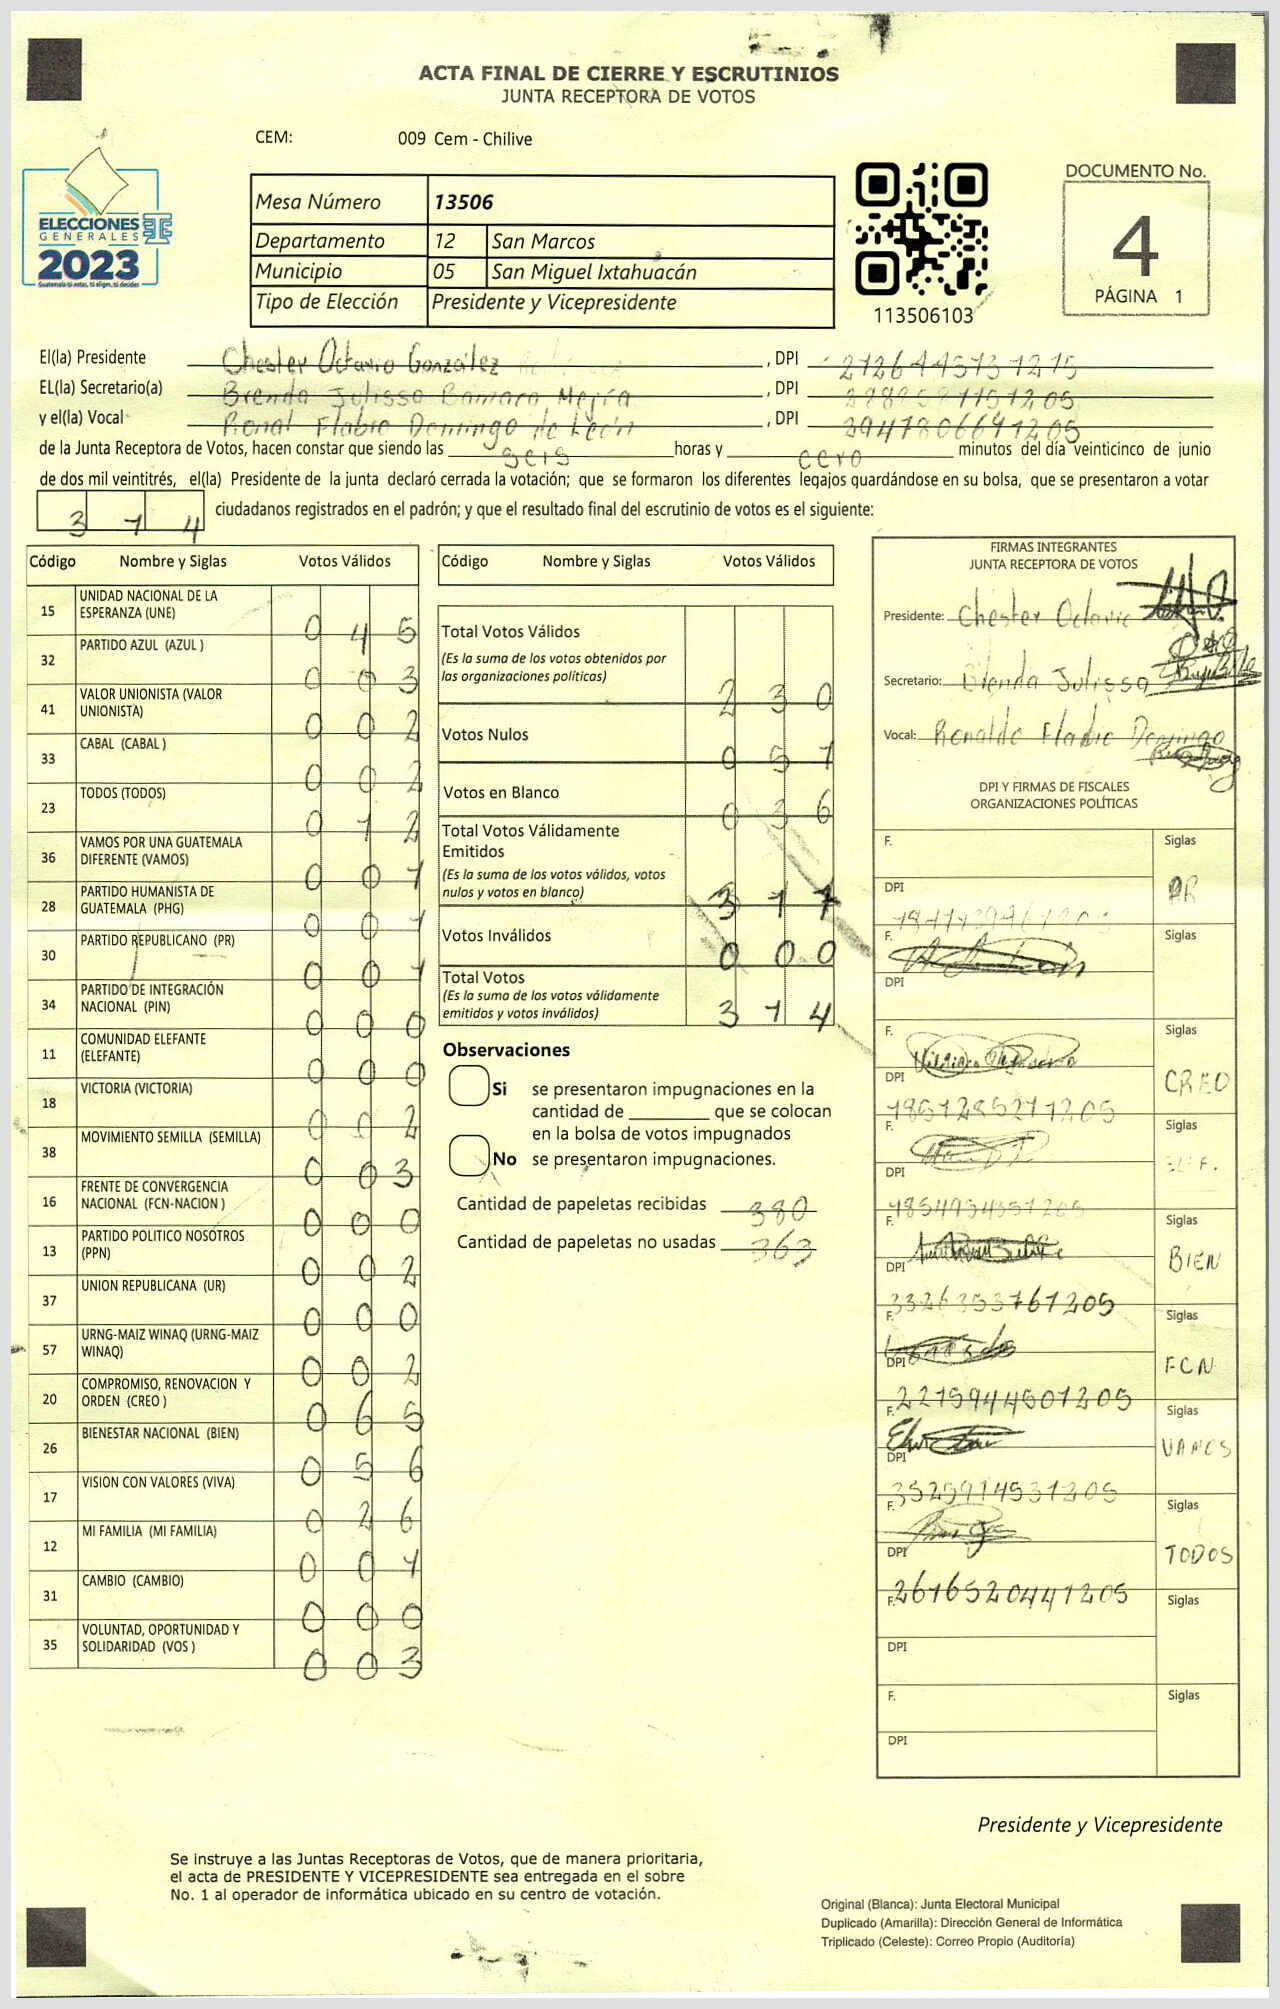 ACTA FINAL DE CIERRE Y ESCRUTINIOS
JUNTA RECEPTORA DE VOTOS
CEM: 009 Cem - Chilive
ELECCIONES
GENERALES
2023
Guatemala tú estas, tú eliges, tú decides
Mesa Número 13506
Departamento 12 San Marcos
Municipio 05 San Miguel Ixtahuacán
Tipo de Elección Presidente y Vicepresidente
113506103
DOCUMENTO No.
4
PÁGINA 1
El(la) Presidente Chester Octavio González , DPI
EL(la) Secretario(a) Brenda Julissa Bamaca Mejía , DPI
y el(la) Vocal Ronal Flabio Domingo de León , DPI 3947806641205
de la Junta Receptora de Votos, hacen constar que siendo las seis horas y cero minutos del día veinticinco de junio
de dos mil veintitrés, el(la) Presidente de la junta declaró cerrada la votación; que se formaron los diferentes legajos guardándose en su bolsa, que se presentaron a votar
3 1 4 ciudadanos registrados en el padrón; y que el resultado final del escrutinio de votos es el siguiente:
Código Nombre y Siglas Votos Válidos
15 UNIDAD NACIONAL DE LA ESPERANZA (UNE) 0 4 5
32 PARTIDO AZUL (AZUL ) 0 0 3
41 VALOR UNIONISTA (VALOR UNIONISTA) 0 0 2
33 CABAL (CABAL ) 0 0 2
23 TODOS (TODOS) 0 1 2
36 VAMOS POR UNA GUATEMALA DIFERENTE (VAMOS) 0 0 1
28 PARTIDO HUMANISTA DE GUATEMALA (PHG) 0 0 1
30 PARTIDO REPUBLICANO (PR) 0 0 1
34 PARTIDO DE INTEGRACIÓN NACIONAL (PIN) 0 0 0
11 COMUNIDAD ELEFANTE (ELEFANTE) 0 0 0
18 VICTORIA (VICTORIA) 0 0 2
38 MOVIMIENTO SEMILLA (SEMILLA) 0 0 3
16 FRENTE DE CONVERGENCIA NACIONAL (FCN-NACION ) 0 0 0
13 PARTIDO POLITICO NOSOTROS (PPN) 0 0 2
37 UNION REPUBLICANA (UR) 0 0 0
57 URNG-MAIZ WINAQ (URNG-MAIZ WINAQ) 0 0 2
20 COMPROMISO, RENOVACION Y ORDEN (CREO ) 0 6 5
26 BIENESTAR NACIONAL (BIEN) 0 5 6
17 VISION CON VALORES (VIVA) 0 2 6
12 MI FAMILIA (MI FAMILIA) 0 0 1
31 CAMBIO (CAMBIO) 0 0 0
35 VOLUNTAD, OPORTUNIDAD Y SOLIDARIDAD (VOS ) 0 0 3
Código Nombre y Siglas Votos Válidos
Total Votos Válidos 2 3 0
(Es la suma de los votos obtenidos por
las organizaciones politicas)
Votos Nulos 0 5 1
Votos en Blanco 0 3 6
Total Votos Válidamente
Emitidos
(Es la suma de los votos válidos, votos
nulos y votos en blanco) 3 1 7
Votos Inválidos 0 0 0
Total Votos
(Es la suma de los votos válidamente
emitidos y votos inválidos) 3 1 4
Observaciones
Si se presentaron impugnaciones en la
cantidad de ________ que se colocan
en la bolsa de votos impugnados
No se presentaron impugnaciones.
Cantidad de papeletas recibidas 380
Cantidad de papeletas no usadas 363
FIRMAS INTEGRANTES
JUNTA RECEPTORA DE VOTOS
Presidente: Chester Octavio
Secretario: Brenda Julissa
Vocal: Ronaldo Flabio Domingo
DPI Y FIRMAS DE FISCALES
ORGANIZACIONES POLÍTICAS
F. Siglas
DPI
F. Siglas
DPI
F. Siglas
DPI CREO
1851285211205
F. Siglas
DPI
F. Siglas
DPI BIEN
3326353761205
F. Siglas
DPI FCN
2215944501205
F. Siglas
DPI VAMOS
3525914531205
F. Siglas
DPI TODOS
2616520441205
F. Siglas
DPI
F. Siglas
DPI
Presidente y Vicepresidente
Se instruye a las Juntas Receptoras de Votos, que de manera prioritaria,
el acta de PRESIDENTE Y VICEPRESIDENTE sea entregada en el sobre
No. 1 al operador de informática ubicado en su centro de votación.
Original (Blanca): Junta Electoral Municipal
Duplicado (Amarilla): Dirección General de Informática
Triplicado (Celeste): Correo Propio (Auditoría)